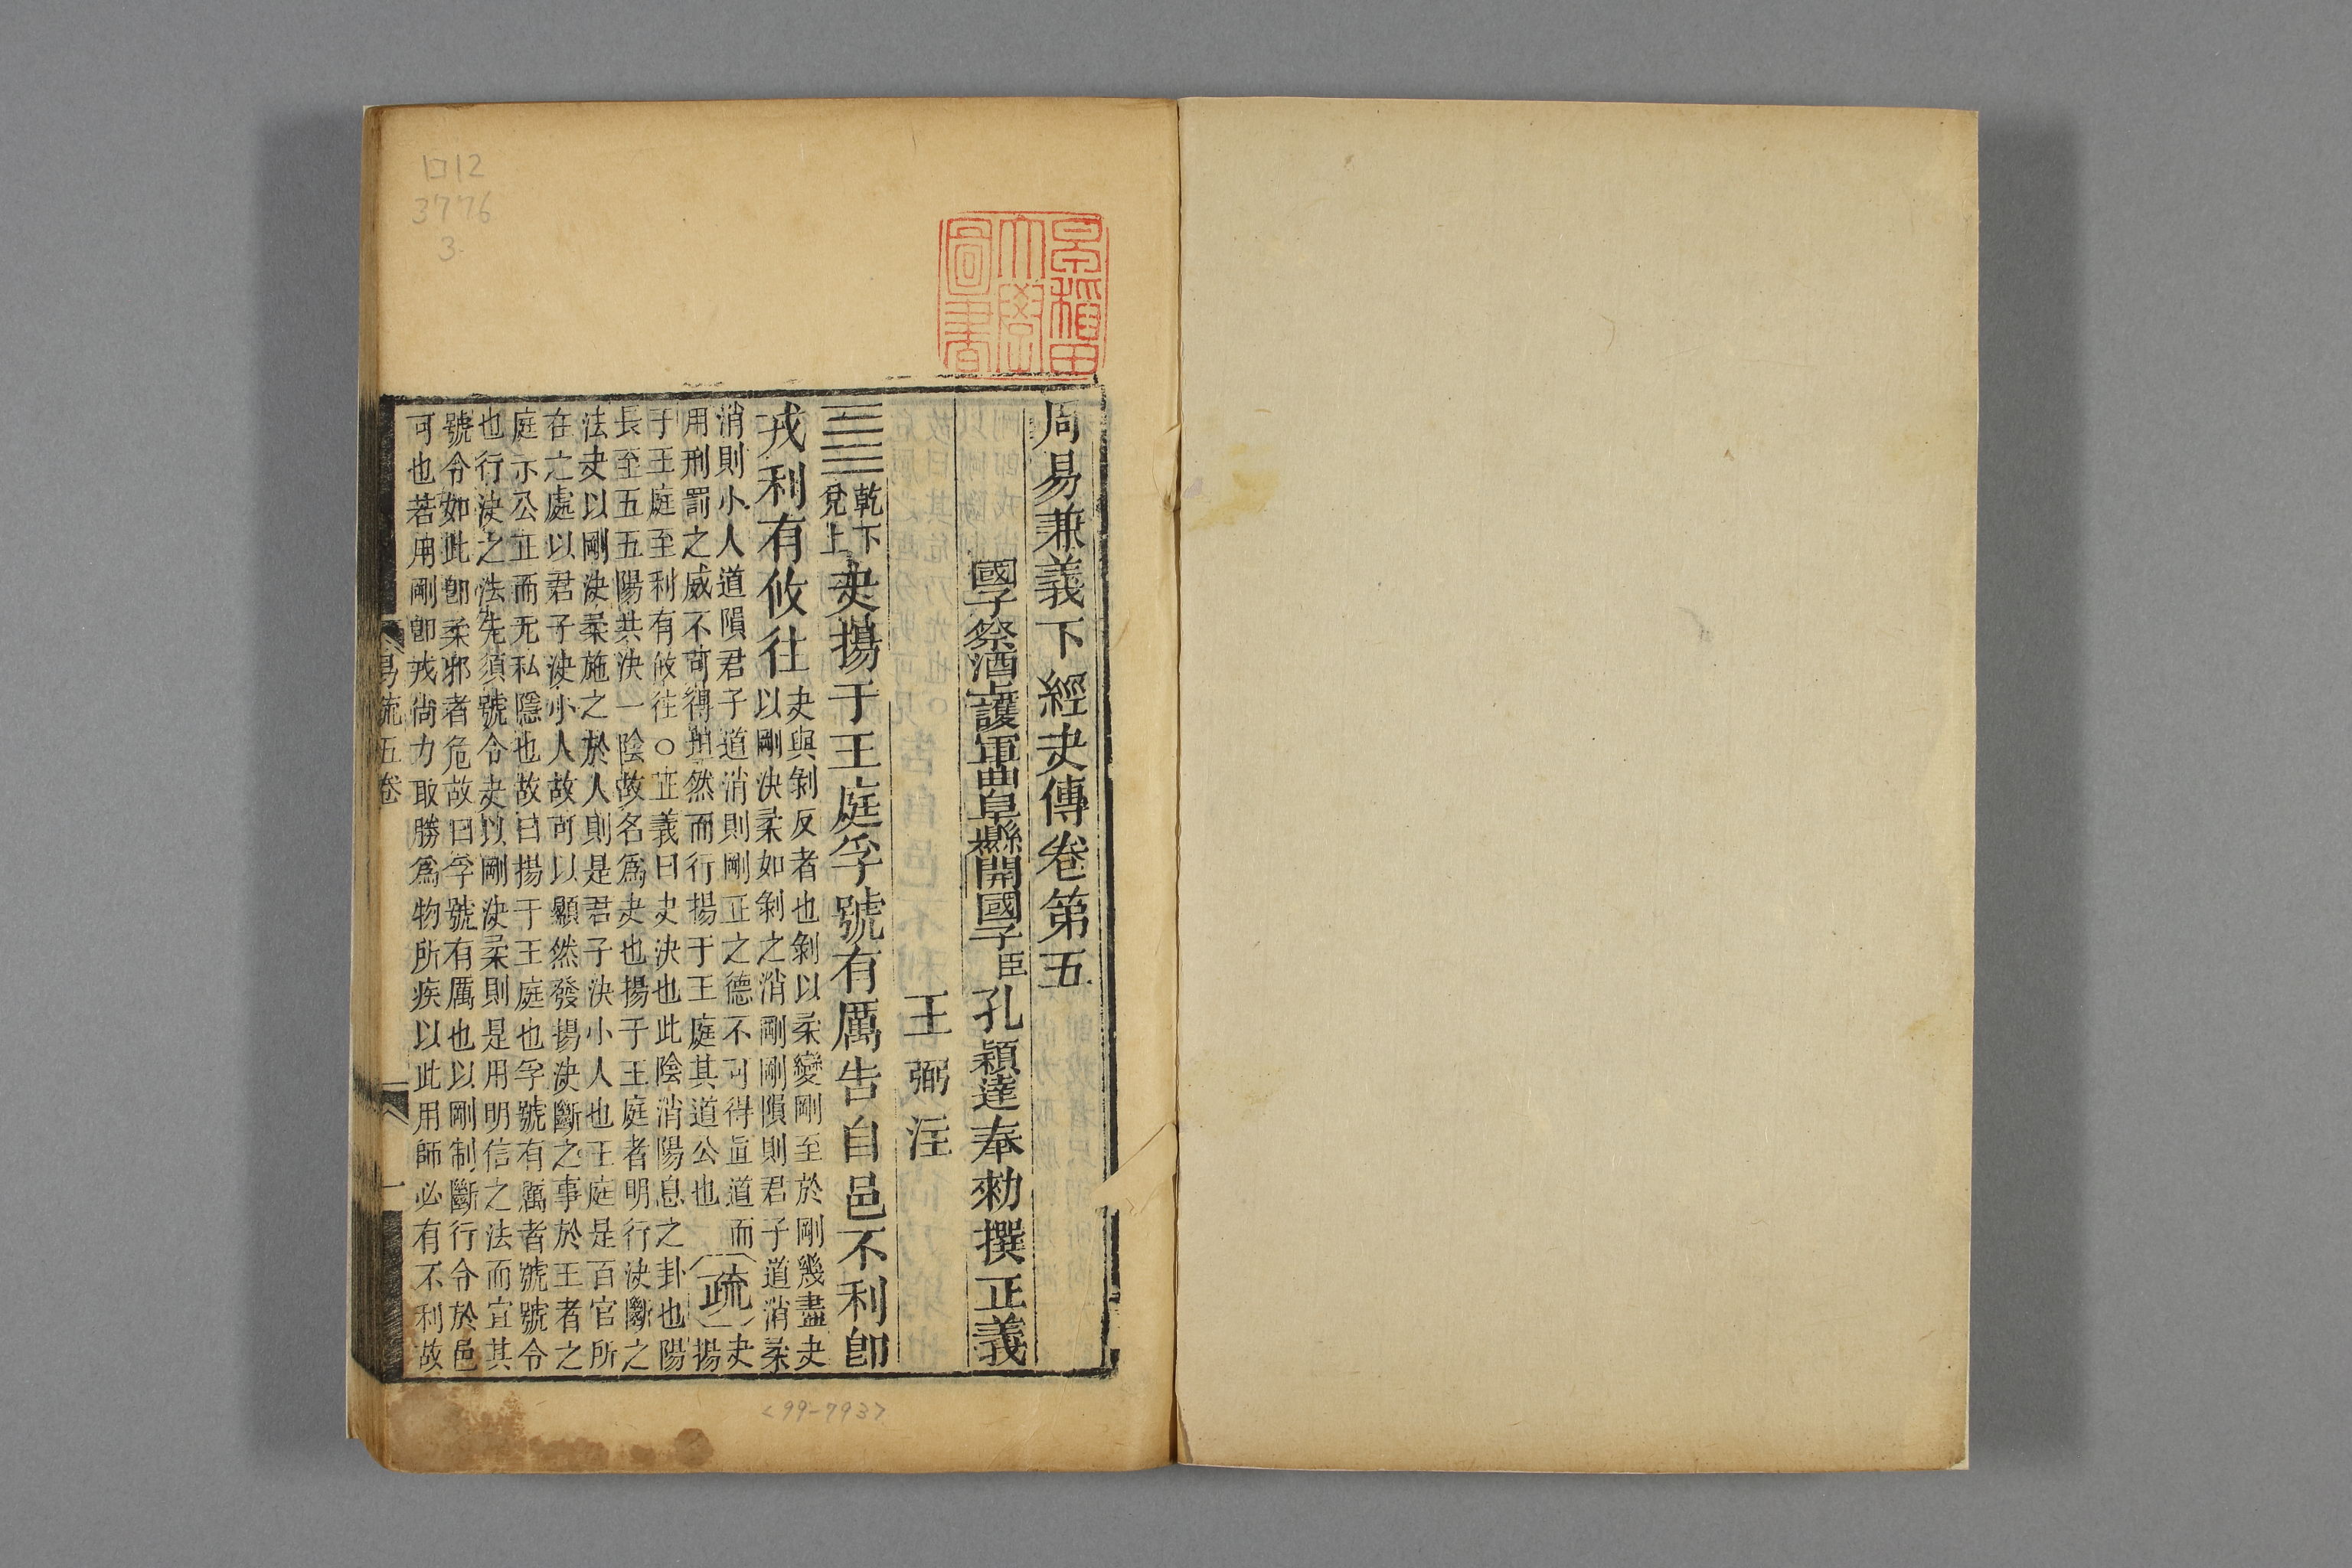 早稲田
大學
圖書
周易兼義下經夬傳卷第五
國子祭酒上護軍曲阜縣開國子臣孔穎達奉勑撰正義
王弼注
䷪乾下兌上夬揚于王庭孚號有厲告自邑不利卽
戎利有攸往夬與剝反者也剝以柔變剛至於剛幾盡夬
以剛決柔如剝之消剛剛隕則君子道消柔
消則小人道隕君子道消則剛正之德不可得直道而
用刑罰之威不可得坦然而行揚于王庭其道公也
疏夬揚
于王庭至利有攸往○正義曰夬決也此陰消陽息之卦也陽
長至五五陽共決一陰故名爲夬也揚于王庭者明行決斷之
法夬以剛決柔施之於人則是君子決小人也王庭是百官所
在之處以君子決小人故可以顯然發揚決斷之事於王者之
庭示公正而无私隱也故曰揚于王庭也孚號有厲者號號令
也行決之法先須號令夬以剛決柔則是用明信之法而宣其
號令如此卽柔邪者危故曰孚號有厲也以剛制斷行令於邑
可也若用剛卽戎尚力取勝爲物所疾以此用師必有不利故
易疏五卷
一
ロ12
3776
3
<99-793>